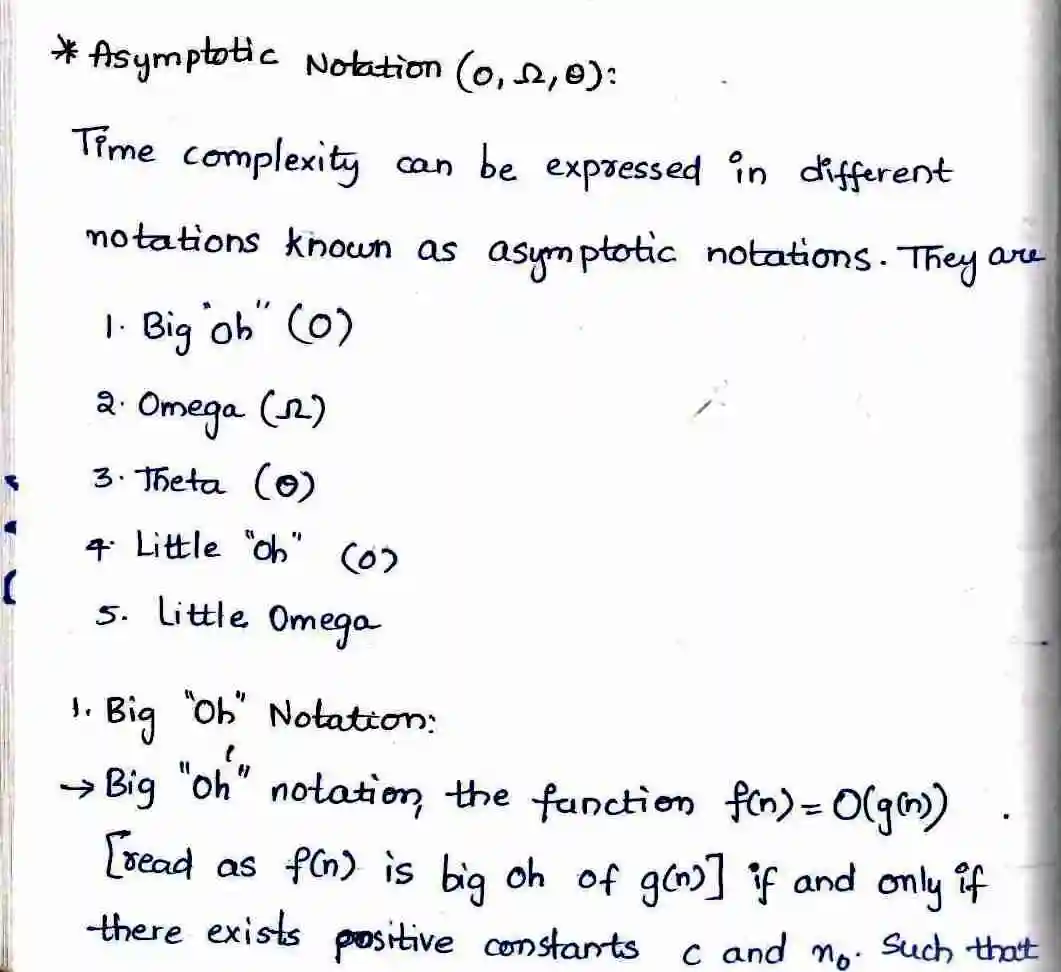 * Asymptotic Notation (O, Ω, θ):
Time complexity can be expressed in different
notations known as asymptotic notations. They are
1. Big "oh" (O)
2. Omega (Ω)
3. Theta (θ)
4. Little "oh" (o)
5. Little Omega
1. Big "Oh" Notation:
→ Big "oh" notation, the function f(n) = O(g(n))
[read as f(n) is big oh of g(n)] if and only if
there exists positive constants c and n₀. Such that